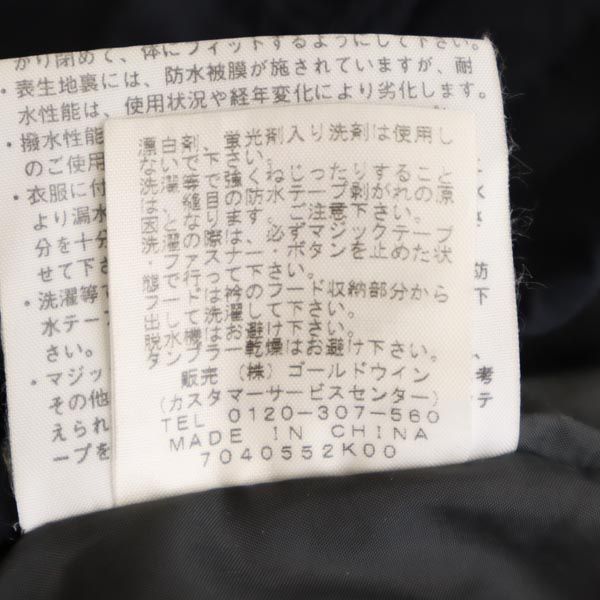 かり閉めて、体にフィットするようにして下さい。
・表生地裏には、防水被膜が施されていますが、耐
水性能は、使用状況や経年変化により劣化します。
・撥水性能
のご使用
・衣服に付
より漏水
分を十分
せて下さ
・洗濯等で
水テー
さい。
・マジッ
その他
えられ
ープを
漂白剤、蛍光剤入り洗剤は使用し
ないで下さい。
洗濯等で強くねじったりすること
は、縫目の防水テープ剥がれの原
因となります。ご注意下さい。
洗濯の際は、必ずマジックテープ
ファスナー・ボタンを止めた状
態で行って下さい。
フードは衿のフード収納部分から
出して洗濯して下さい。
脱水機はお避け下さい。
タンブラー乾燥はお避け下さい。
販売 (株)ゴールドウイン
(カスタマーサービスセンター)
TEL 0120-307-560
MADE IN CHINA
7040552K00